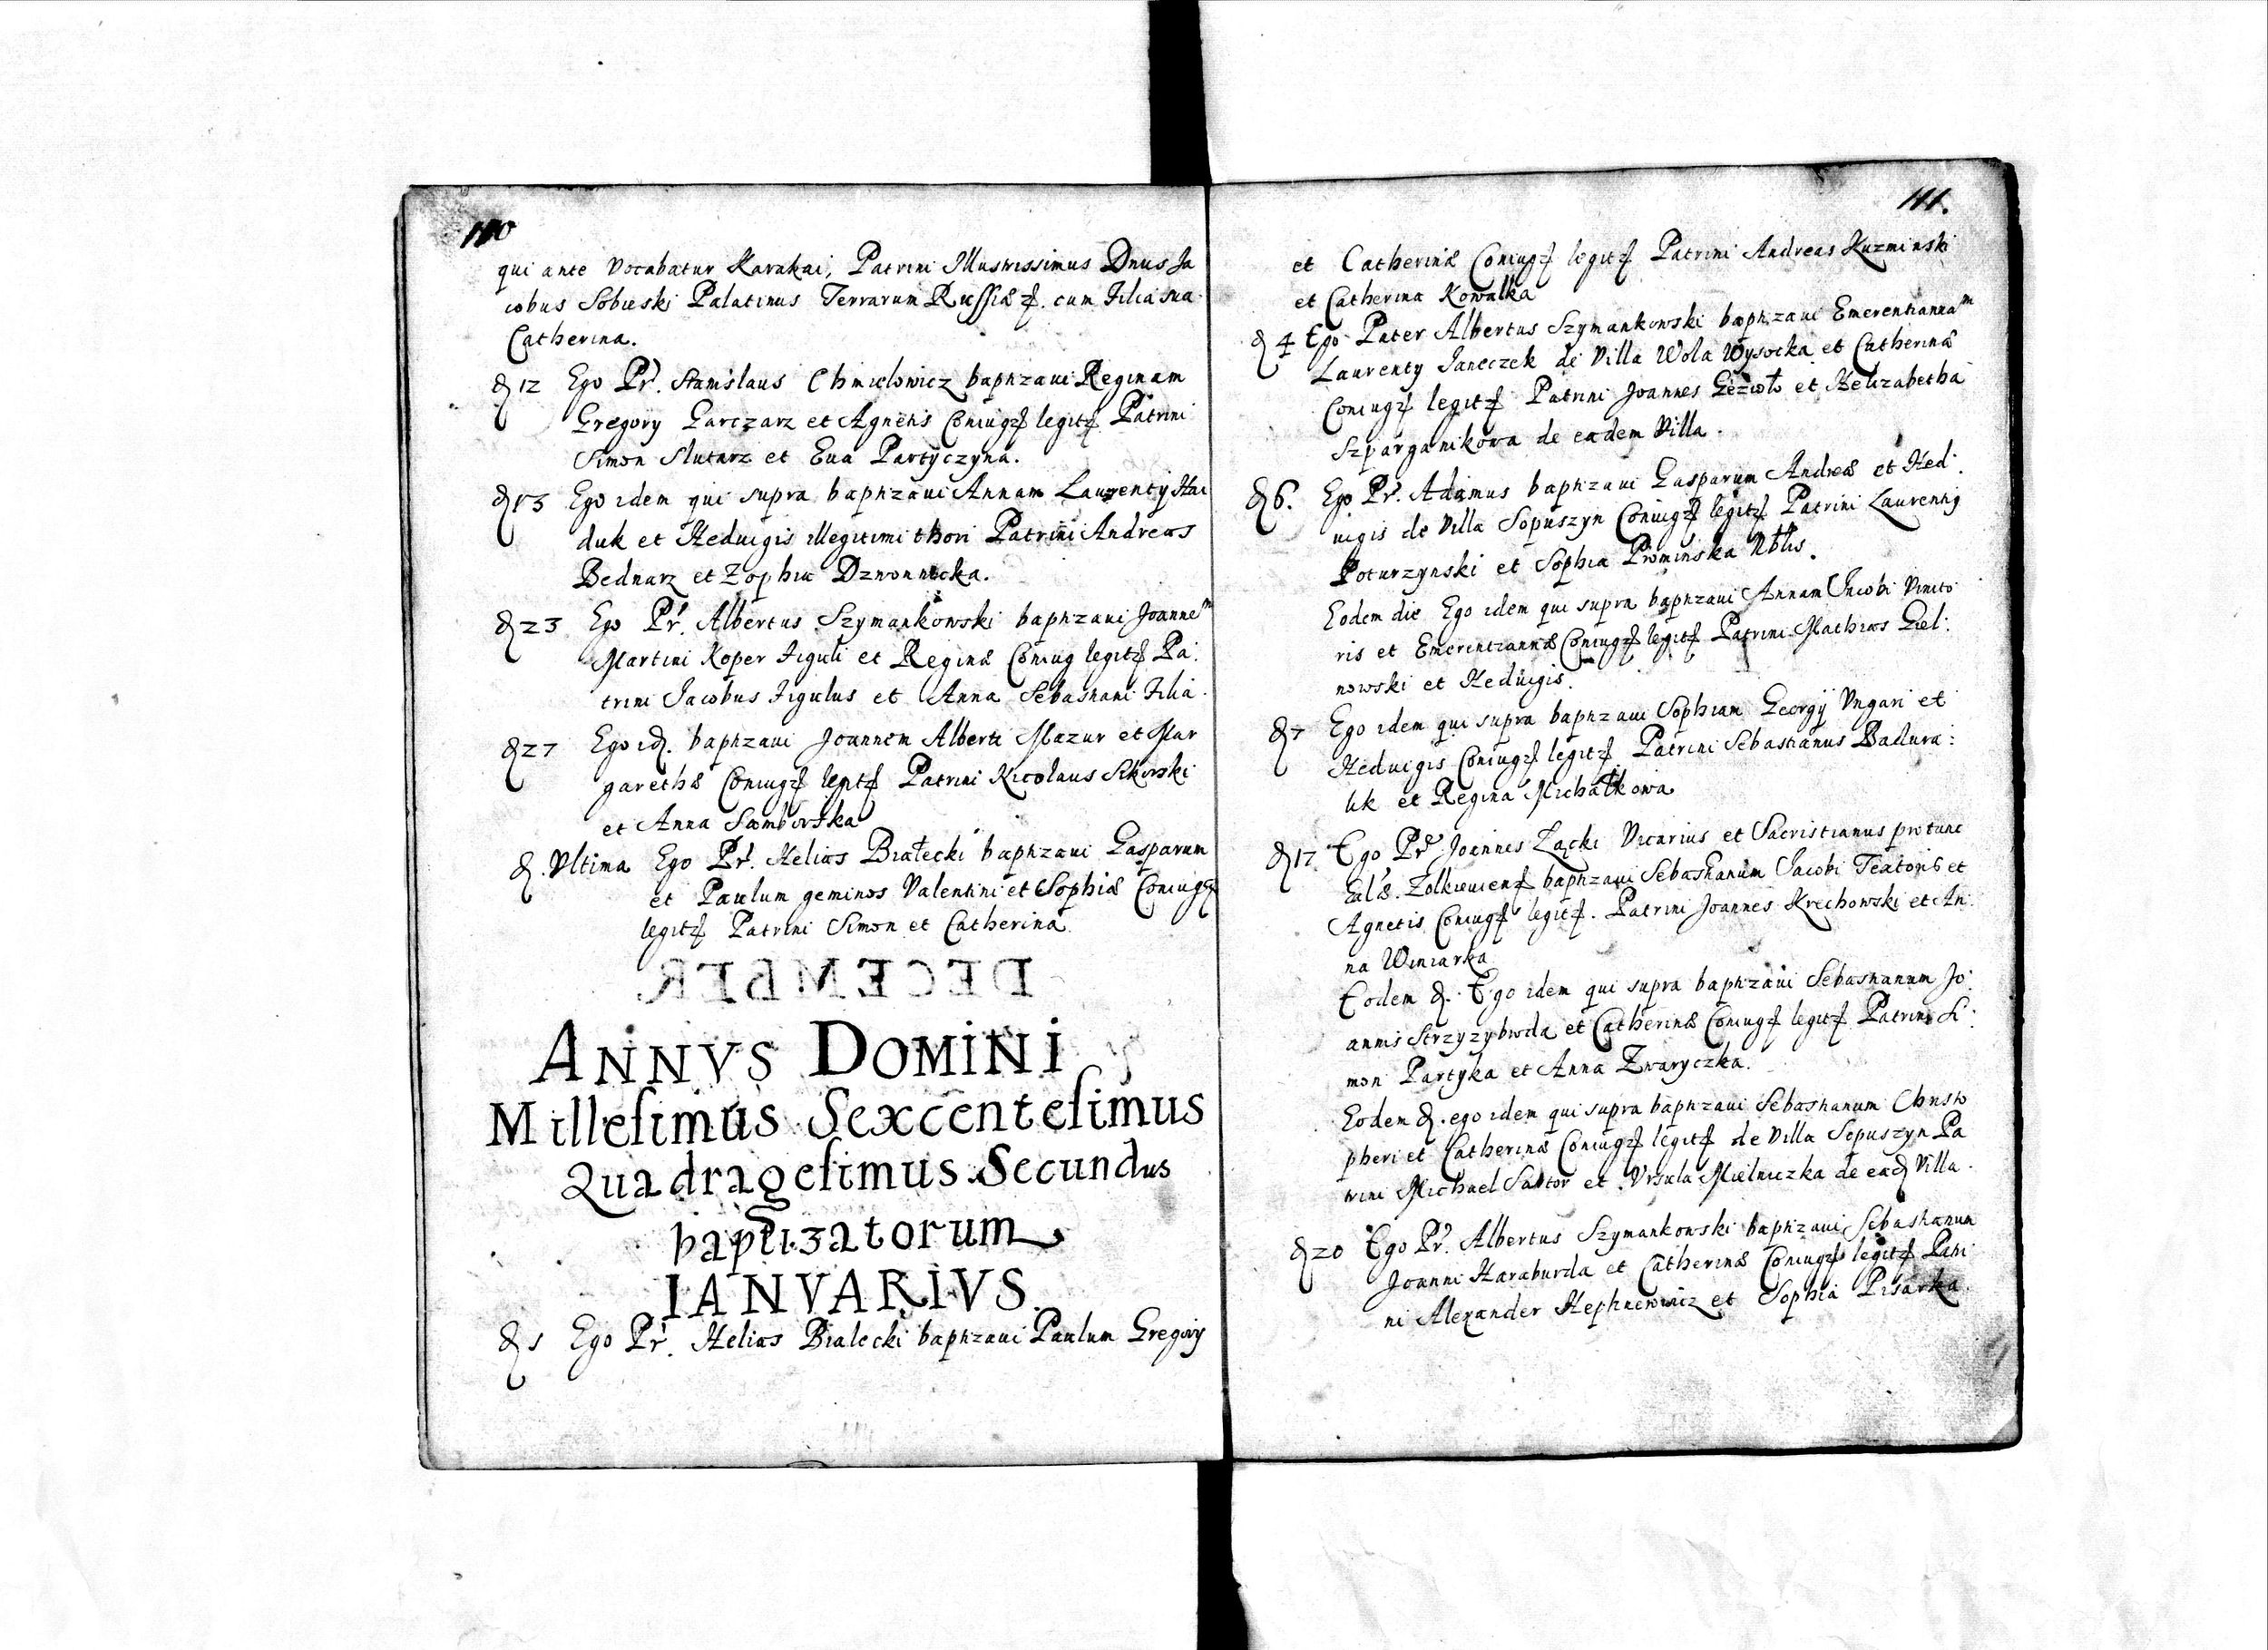 110
qui ante vocabatur Karakai, Patrini Illustrissimus Dnus Ja
cobus Sobieski Palatinus Terrarum Russiæ &. cum Filia sua
Catherina.
D 12 Ego Pr. Stanislaus Chmielowicz baptizaui Reginam
Gregory Garczarz et Agnetis Coniugz legitz Patrini
Simon Slutarz et Eua Partyczyna.
D 13 Ego idem qui supra baptizaui Annam Laurentij Hai
duk et Heduigis illegitimi thori Patrini Andreas
Bednarz et Zophia Dzwonnicka.
D 23 Ego Pr. Albertus Szymankowski baptizaui Joannem
Martini Koper figuli et Reginæ Coniug legitz Pa:
trini Jacobus Figulus et Anna Sebastiani Filia.
D 27 Ego id. baptizaui Joannem Alberti Mazur et Mar
garethæ Coniugz legitz Patrini Nicolaus Sikorski
et Anna Samborska
D. Vltima Ego Pr. Helias Białecki baptizaui Gasparum
et Paulum geminos Valentini et Sophiæ Coniugz
legitz Patrini Simon et Catherina
DECEMBER
ANNVS DOMINI
Millesimus Sexcentesimus
Quadragesimus Secundus
baptizatorum
IANVARIVS
D 1 Ego Pr. Helias Bialecki baptizaui Paulum Gregorij
111.
et Catherinæ Coniugz legitz Patrini Andreas Kuzminski
et Catherina Kowalka
D 4 Ego Pater Albertus Szymankowski baptizaui Emerentiannam
Laurenty Janeczek de Villa Wola Wysocka et Catherinæ
Coniugz legitz Patrini Joannes et Helizabetha
Szparganikowa de eadem Villa.
D 6. Ego Pr. Adamus baptizaui Gasparum Andreæ et Hed:
uigis de Villa Sopuszyn Coniugz legitz Patrini Laurentij
Poturzynski et Sophia
Eodem die Ego idem qui supra baptizaui Annam Jacobi Vinito
ris et Emerentiannæ Coniugz legitz Patrini Mathias Giel:
nowski et Heduigis.
D 7 Ego idem qui supra baptizaui Sophiam Georgij Vngari et
Heduigis Coniugz legitz Patrini Sebastianus Badura:
lik et Regina Michałkowa
D 17 Ego Pr. Joannes Łącki Vicarius et Sacristianus pro tunc
Ecl'æ. Zolkieuienz baptizaui Sebastianum Jacobi Textoris et
Agnetis Coniugz legitz. Patrini Joannes Krechowski et An:
na Winiarka
Eodem D. Ego idem qui supra baptizaui Sebastianum Jo:
annis Strzyzybroda et Catherinæ Coniugz legitz Patrini Si:
mon Partyka et Anna Zwaryczka.
Eodem D. ego idem qui supra baptizaui Sebastianum Christo
pheri et Catherinæ Coniugz legitz de Villa Sopuszyn Pa
trini Michael Sartor et Vrsula Mielniczka de ead Villa.
D 20 Ego Pr. Albertus Szymankowski baptizaui Sebastianum
Joanni Haraburda et Catherinæ Coniugz legitz Patri
ni Alexander et Sophia Pisarka.